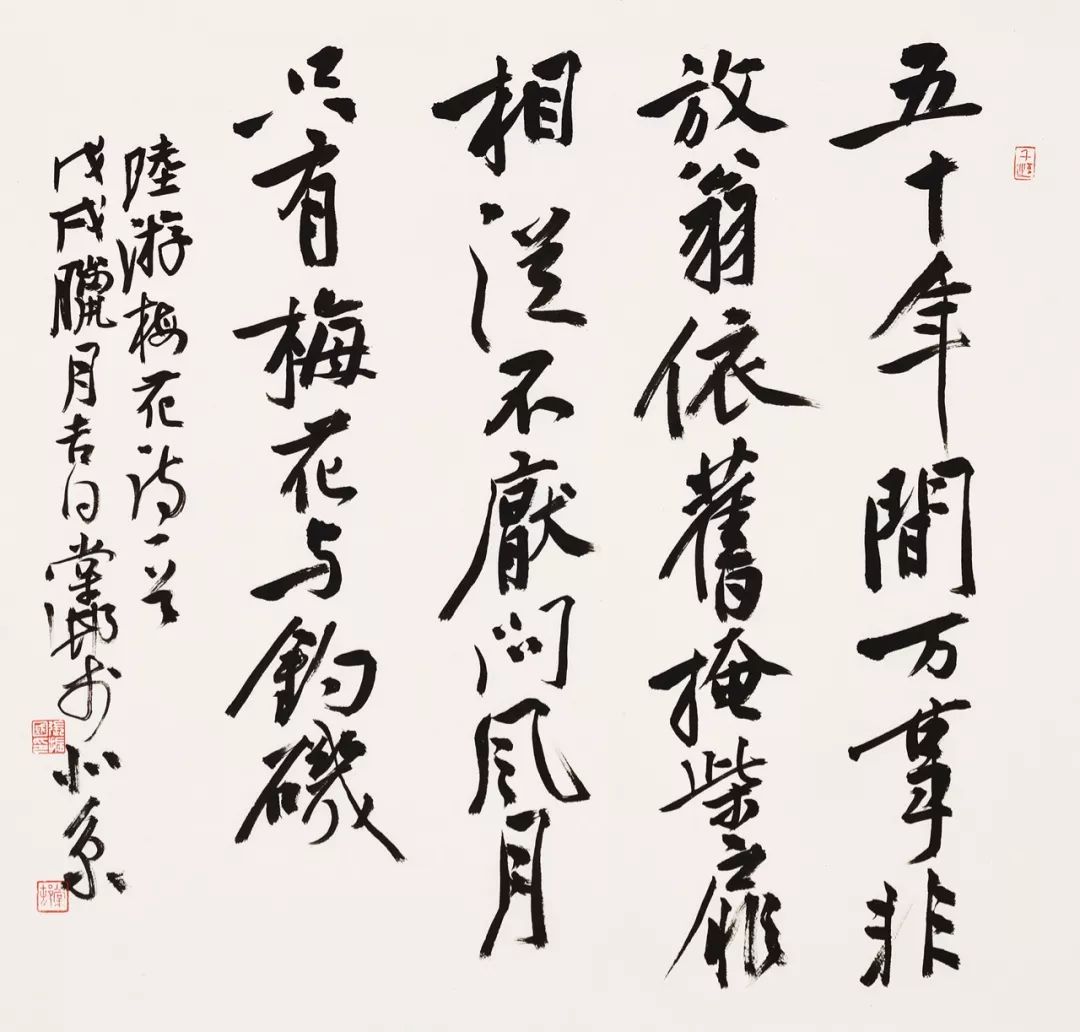 五十年間万事非
放翁依舊掩柴扉
相從不厭闲风月
只有梅花与釣磯
陸游梅花诗一首
戊戌臘月吉日 於北京